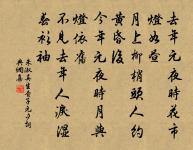 去年元夜時花市
燈如晝
月上柳梢頭人約
黃昏後
今年元夜時月與
燈依舊
不見去年人淚濕
春衫袖
朱淑真生查子元夕詞